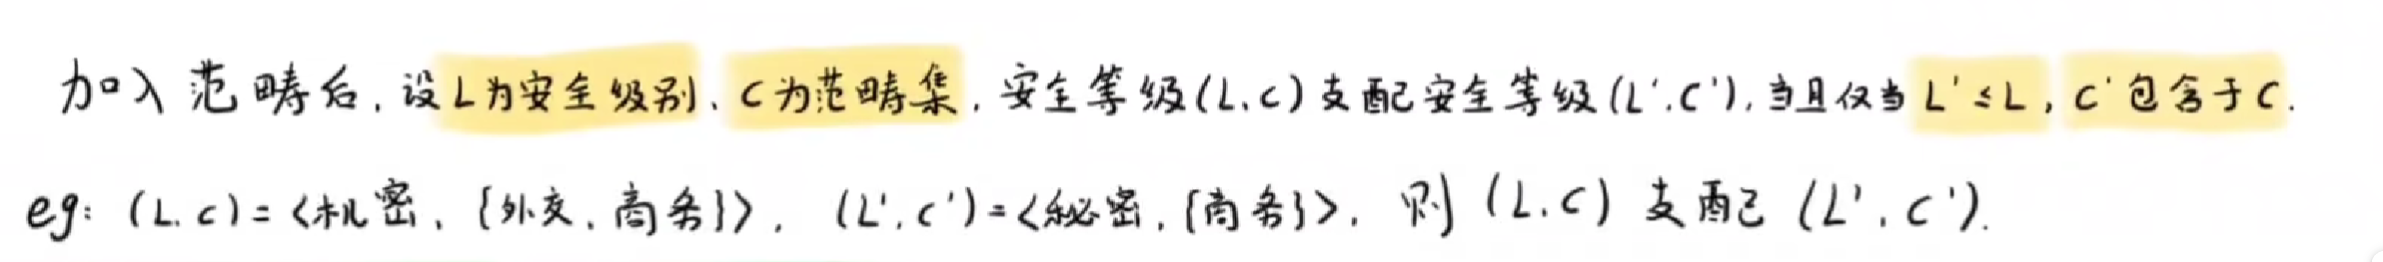 加入范畴后，设L为安全级别、C为范畴集，安全等级(L,C)支配安全等级(L',C')，当且仅当L'≤L，C'包含于C.
eg: (L,C)=<机密，{外交，商务}>，(L',C')=<秘密，{商务}>，则(L,C)支配(L',C').